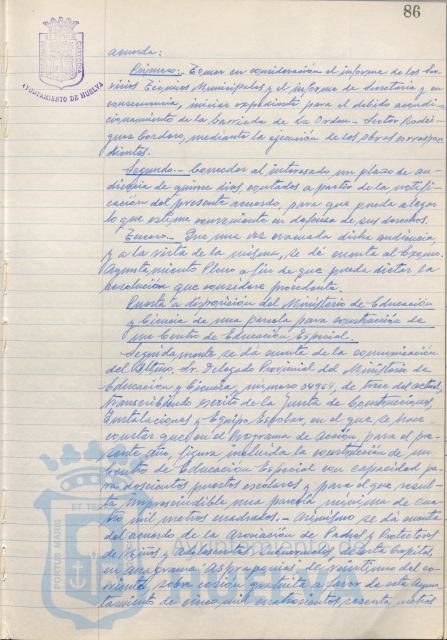 86
AYUNTAMIENTO DE HUELVA
acuerda:
Primero: Tomar en consideración el informe de los Ser-
vicios Técnicos Municipales y el informe de Secretaría y en
consecuencia, iniciar expediente para el debido acondi-
cionamiento de la Barriada de La Orden - Sector Rodri-
guez Cordero, mediante la ejecución de las obras correspon-
dientes.
Segundo.- Conceder al interesado un plazo de au-
diencia de quince días contados a partir de la notifi-
cación del presente acuerdo, para que pueda alegar
lo que estime conveniente en defensa de sus derechos.
Tercero.- Que una vez evacuada dicha audiencia,
y a la vista de la misma, se dé cuenta al Excmo.
Ayuntamiento Pleno a fin de que pueda dictar la
resolución que considere procedente.
Puesta a disposición del Ministerio de Educación
y Ciencia de una parcela para construcción de
un Centro de Educación Especial.
Seguidamente se dá cuenta de la comunicación
del Iltmo. Sr. Delegado Provincial del Ministerio de
Educación y Ciencia, número de trece del actual,
transcribiendo escrito de la Junta de Construcciones,
Instalaciones y Equipo Escolar, en el que se hace
constar que en el Programa de Acción, para el pre-
sente año, figura incluida la construcción de un
Centro de Educación Especial con capacidad pa-
ra doscientos puestos escolares y para el que resul-
ta imprescindible una parcela mínima de cua-
tro mil metros cuadrados.- Asimismo se dá cuenta
del acuerdo de la Asociación de Padres y Protectores
de Niños y Adolescentes Subnormales de esta Capital,
en anagrama de veintiuno del co-
rriente, sobre cesión gratuita a favor de este Ayun-
tamiento de cinco mil cuatrocientos sesenta metros
PORTUS MARIS
HUELVA